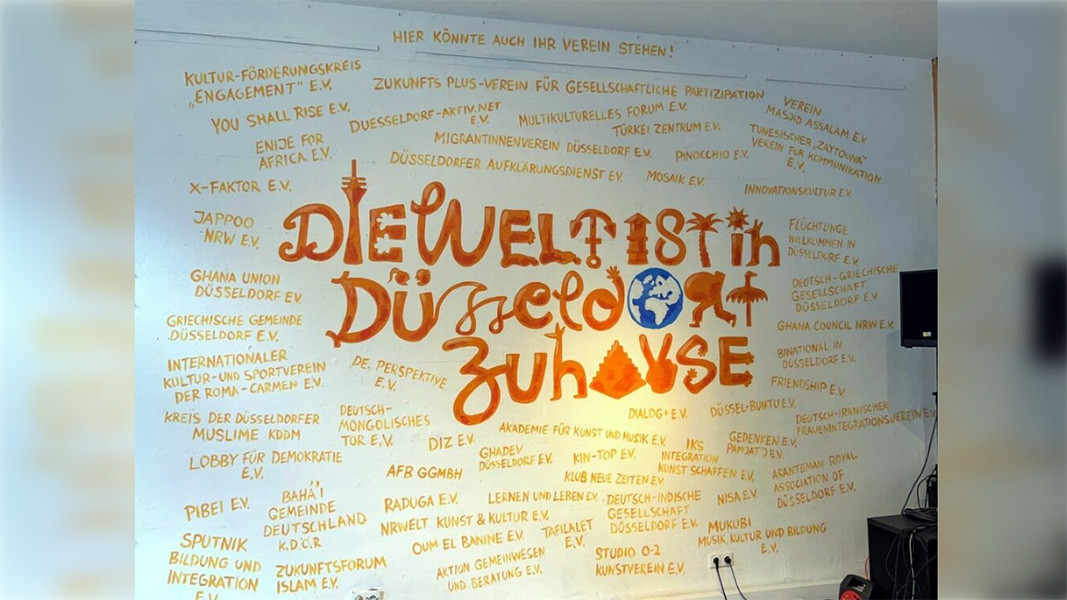 HIER KÖNNTE AUCH IHR VEREIN STEHEN!
KULTUR-FÖRDERUNGSKREIS
„ENGAGEMENT" E.V.
ZUKUNFTS PLUS-VEREIN FÜR GESELLSCHAFTLICHE PARTIZIPATION
VEREIN
MASJID ASSALAM E.V.
YOU SHALL RISE E.V.
DUESSELDORF-AKTIV.NET
E.V.
MULTIKULTURELLES FORUM E.V.
TÜRKEI ZENTRUM E.V.
TUNESISCHER „ZAYTOUNA"
VEREIN FÜR KOMMUNIKATION
E.V.
ENIJE FOR
AFRICA E.V.
MIGRANTINNENVEREIN DÜSSELDORF E.V.
PINOCCHIO E.V.
DÜSSELDORFER AUFKLÄRUNGSDIENST E.V.
MOSAIK E.V.
X-FAKTOR E.V.
INNOVATIONSKULTUR E.V.
DIE WELT IST in
DÜSSELDORF
ZUHAUSE
JAPPOO
NRW E.V.
FLÜCHTLINGE
WILLKOMMEN IN
DÜSSELDORF E.V.
GHANA UNION
DÜSSELDORF E.V.
DEUTSCH-GRIECHISCHE
GESELLSCHAFT
DÜSSELDORF E.V.
GRIECHISCHE GEMEINDE
DÜSSELDORF E.V.
GHANA COUNCIL NRW E.V.
INTERNATIONALER
KULTUR-UND SPORTVEREIN
DER ROMA-CARMEN E.V.
DE. PERSPEKTIVE
E.V.
BINATIONAL IN
DÜSSELDORF E.V.
FRIENDSHIP E.V.
KREIS DER DÜSSELDORFER
MUSLIME KDDM
DEUTSCH-
MONGOLISCHES
TOR E.V.
DIALOG+ E.V.
DÜSSEL-BUNTU E.V.
DEUTSCH-IRANISCHER
FRAUENINTEGRATIONSVEREIN E.V.
DIZ E.V.
AKADEMIE FÜR KUNST UND MUSIK E.V.
IKS
INTEGRATION
KUNST SCHAFFEN E.V.
GEDENKEN E.V.
LOBBY FÜR DEMOKRATIE
E.V.
AFB GGMBH
GHADEV
DÜSSELDORF E.V.
KIN-TOP E.V.
KLUB NEUE ZEITEN E.V.
ASANTEMAN ROYAL
ASSOCIATION OF
DÜSSELDORF E.V.
PIBEI E.V.
BAHÁ'Í
GEMEINDE
DEUTSCHLAND
K.D.Ö.R
RADUGA E.V.
LERNEN UND LEBEN E.V.
DEUTSCH-INDISCHE
GESELLSCHAFT
DÜSSELDORF E.V.
NISA E.V.
NRWELT KUNST & KULTUR E.V.
SPUTNIK
BILDUNG UND
INTEGRATION
E.V.
OUM EL BANINE E.V.
TAFILALET
E.V.
MUKUBI
MUSIK, KULTUR UND BILDUNG
E.V.
ZUKUNFTSFORUM
ISLAM E.V.
AKTION GEMEINWESEN
UND BERATUNG E.V.
STUDIO 0-2
KUNSTVEREIN E.V.